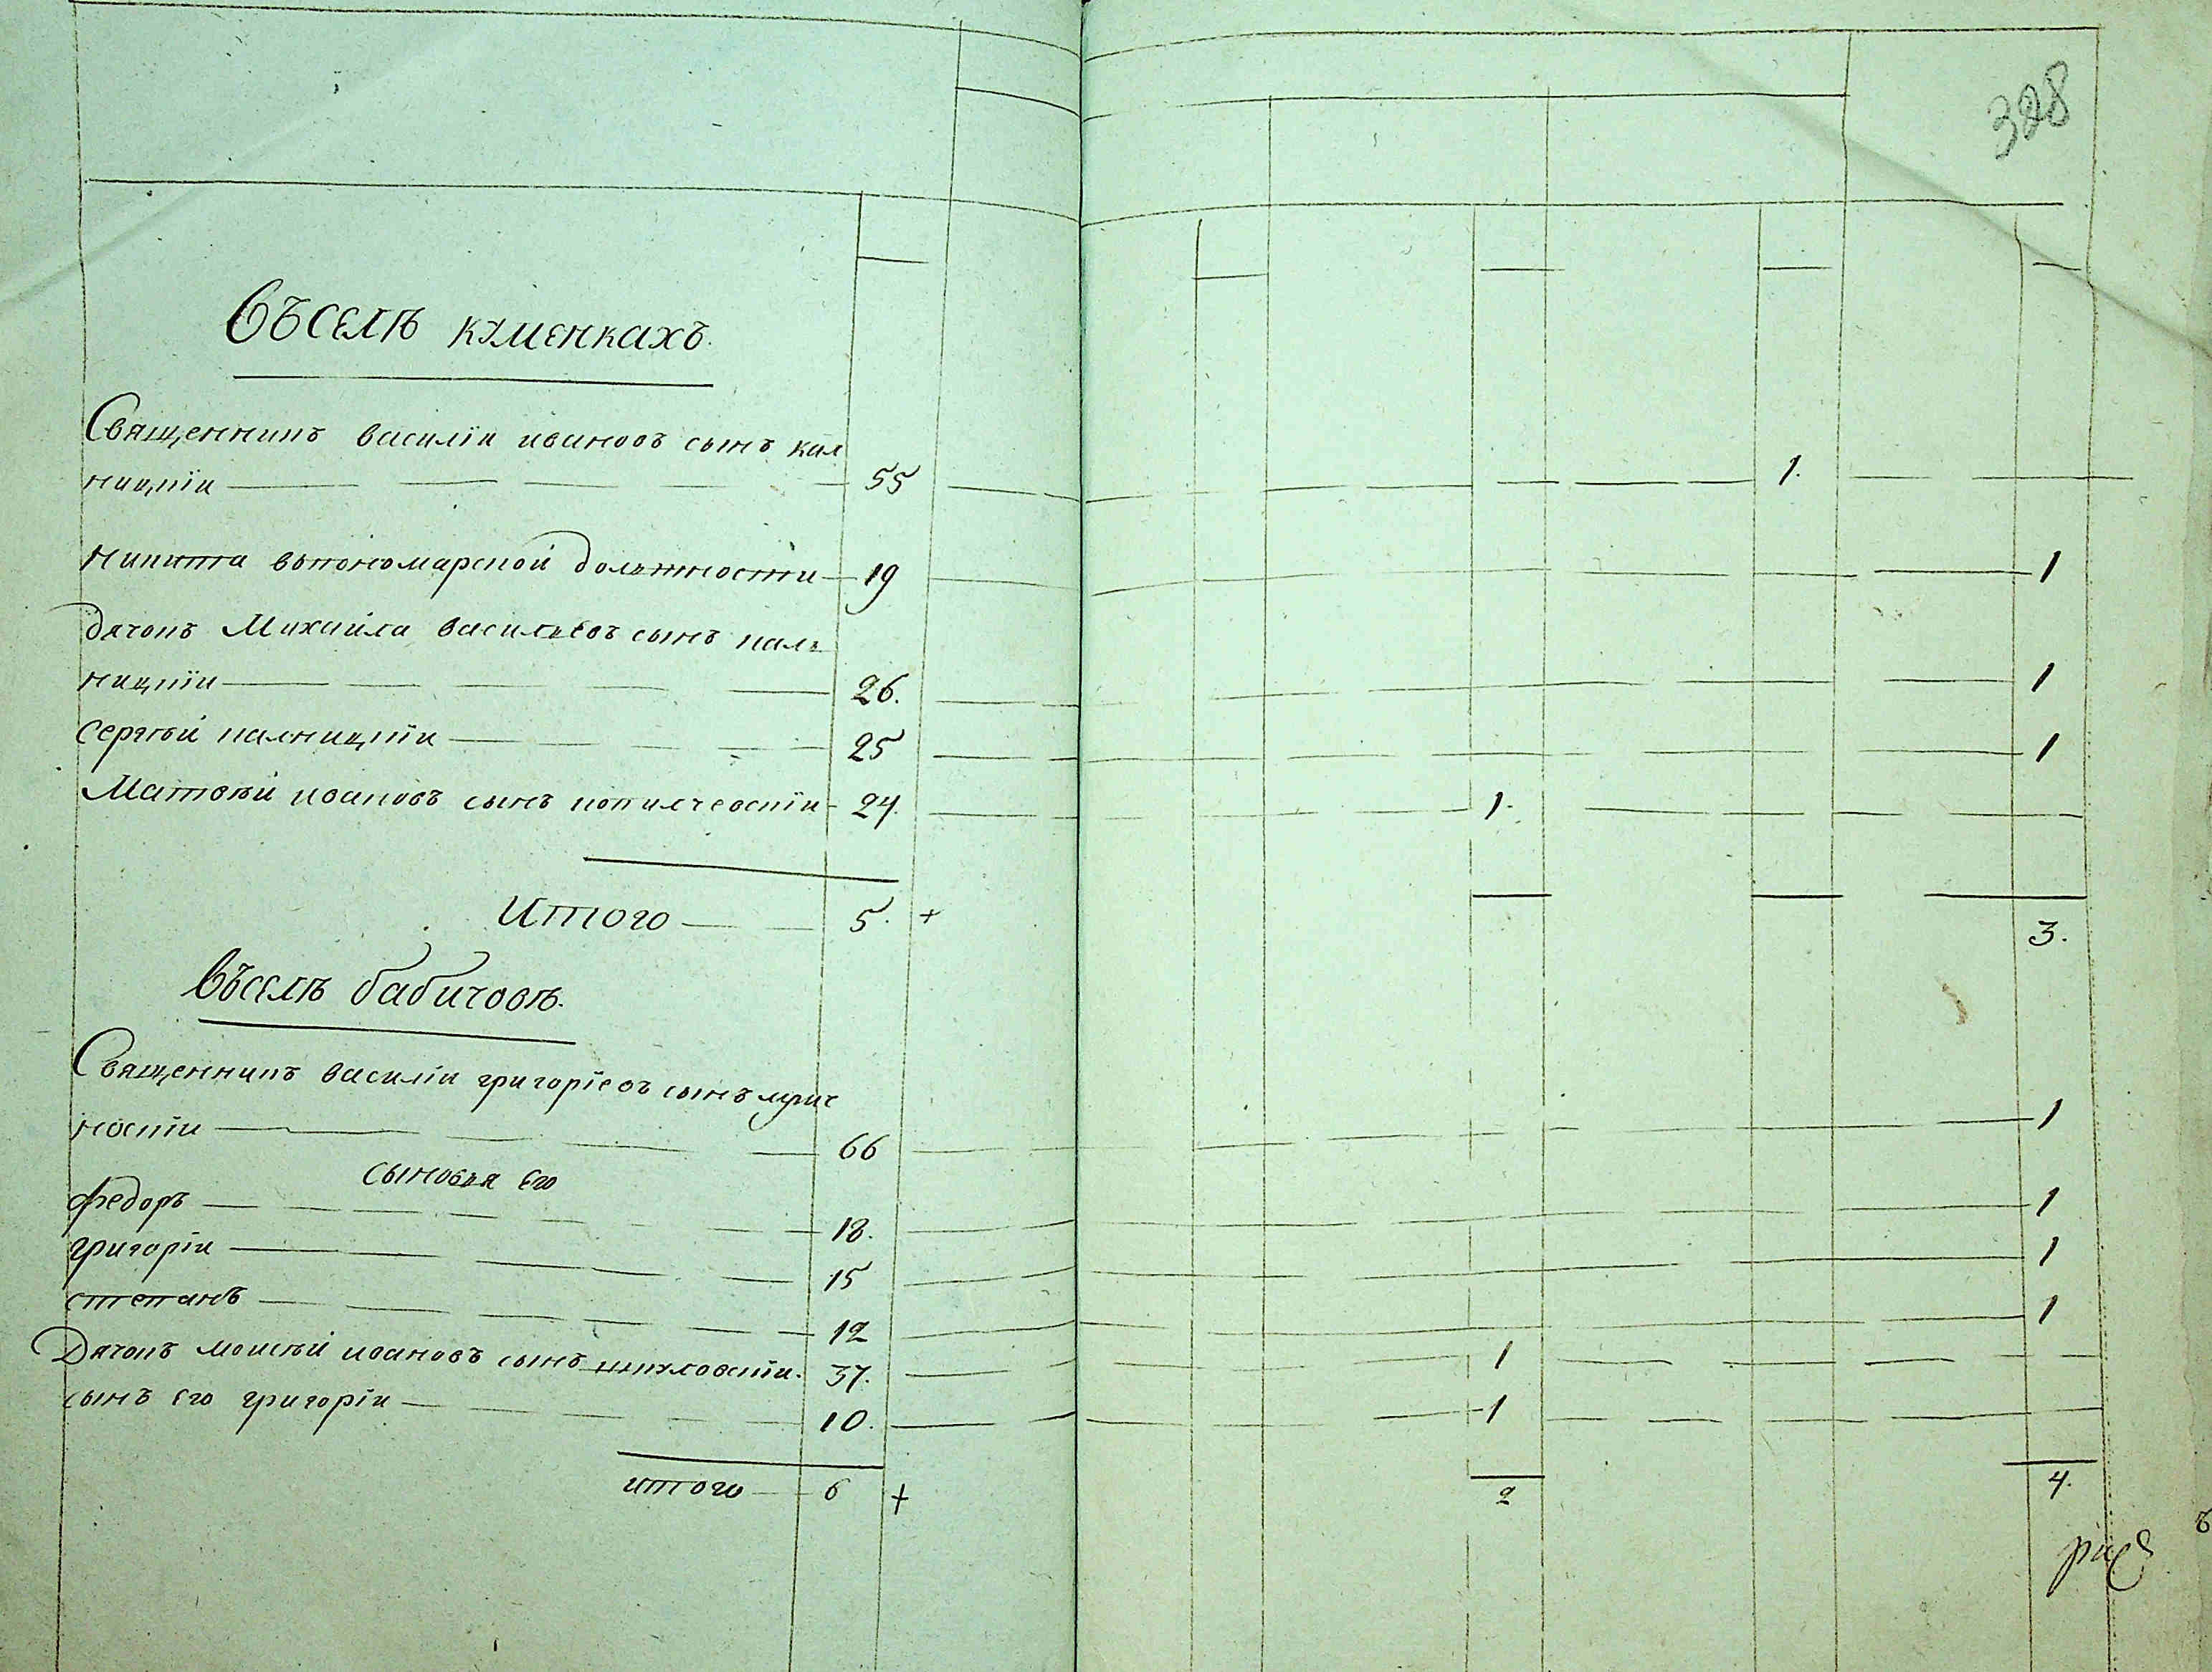 328
Въселѣ кȣменкахъ.
Священникъ василїи ивановъ сынъ кал
ницкїи 55 1.
никита въпономарской должности 19 1
дячокъ Михайла васильевъ сынъ каль
ницкїи 26. 1
Сергѣй калницкїи 25 1
Матвѣй ивановъ сынъ копилчевскїи 24. 1.
Итого 5. + 3.
Въселѣ бабичовѣ.
Священникъ василїи григорїевъ сынъ
новскїи 66 1
Сыновья Его
федоръ 18. 1
григорїи 15 1
степанъ 12 1
Дячокъ моисѣй ивановъ сынъ шкȣловскїи. 37. 1
сынъ Его григорїи 10. 1
итого 6 + 2 4.